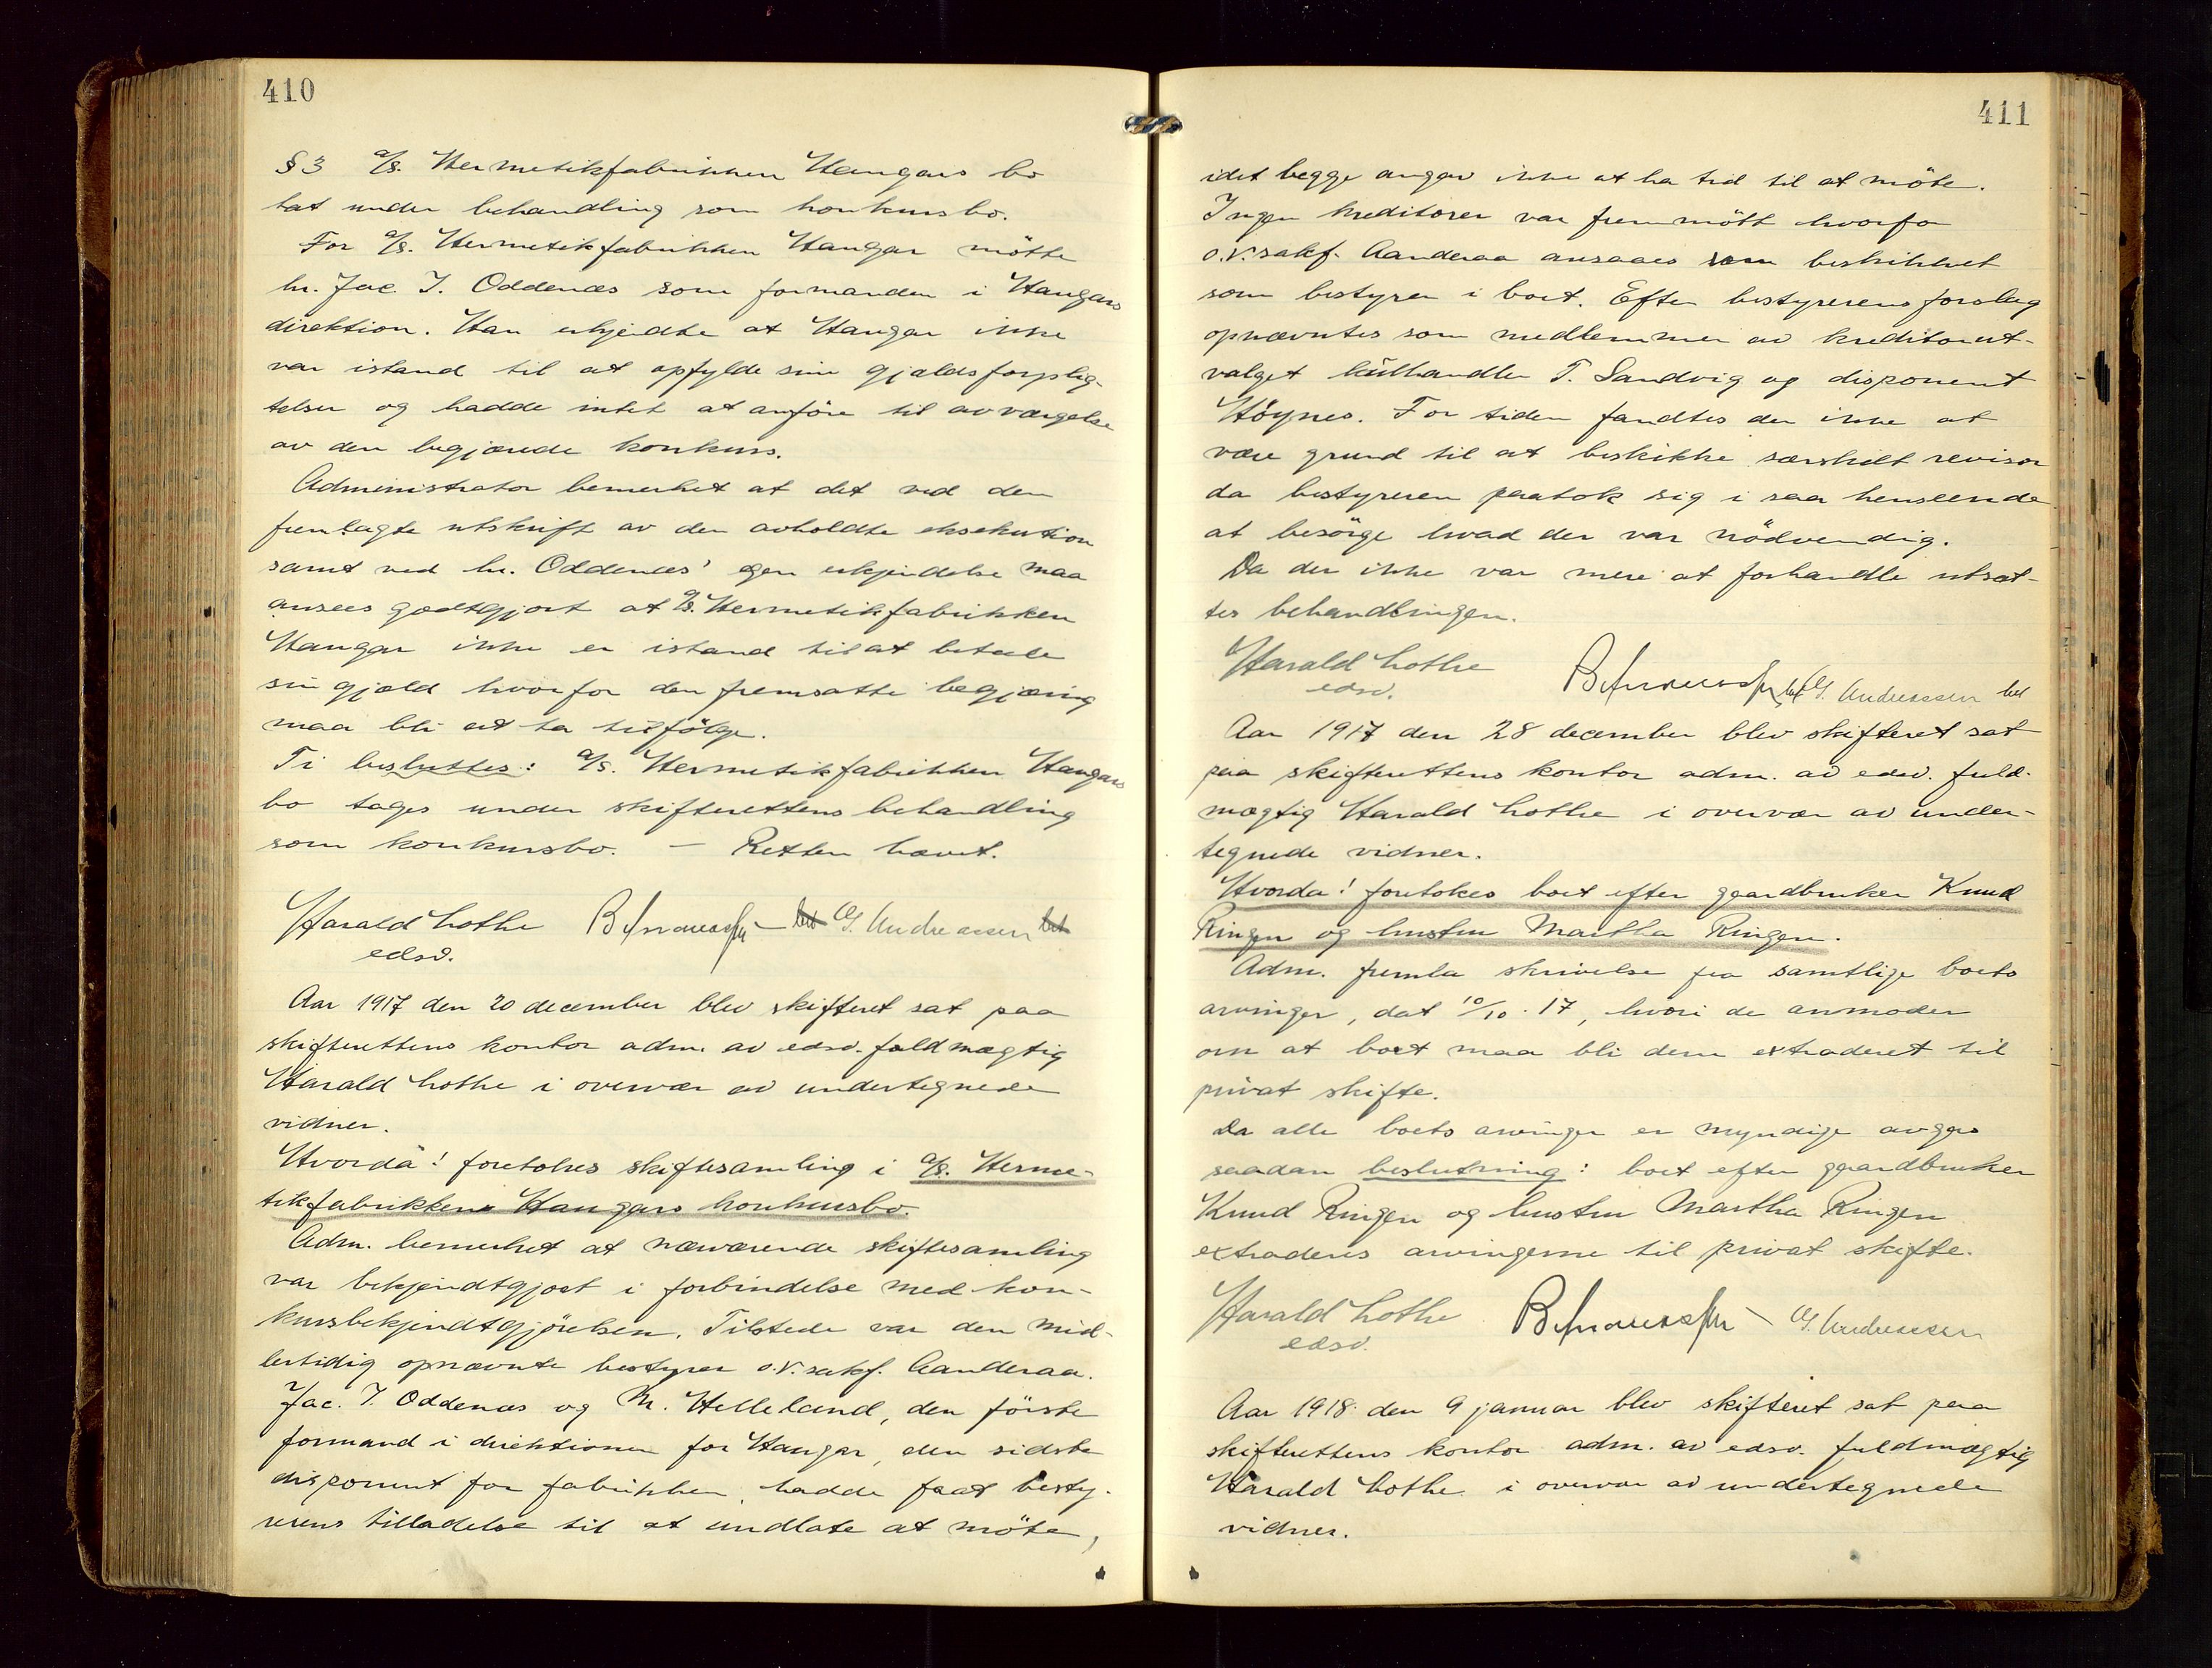 410
§ 3 A/S. Hermetikfabrikken Haugars bo
tat under behandling som konkursbo.
For A/S. Hermetikfabrikken Haugar mötte
hr. Jac. I. Oddenæs som formanden i Haugars
direktion. Han erkjendte at Haugar ikke
var istand til at opfylde sine gjældsforplig-
telser og hadde intet at anföre til avværgelse
av den begjærede konkurs.
Administrator bemerket at det ved den
fremlagte utskrift av den avholdte eksekution
samt ved hr. Oddenæs' egen erkjendelse maa
ansees godtgjort at A/S. Hermetikfabrikken
Haugar ikke er istand til at betale
sin gjæld hvorfor den fremsatte begjæring
maa bli at ta tilfölge.
Ti besluttes: A/S. Hermetikfabrikken Haugars
bo tages under skifterettens behandling
som konkursbo. – Retten hævet.
Harald Lothe G. Andreassen
edsv.
Aar 1917 den 20 december blev skifteret sat paa
skifterettens kontor adm. av edsv. fuldmægtig
Harald Lothe i overvær av undertegnede
vidner.
Hvorda! foretokes skiftesamling i A/S. Herme-
tikfabrikken Haugars konkursbo.
Adm. bemerket at nærværende skiftesamling
var bekjendtgjort i forbindelse med kon-
kursbekjendtgjörelsen. Tilstede var den mid-
lertidig opnævnte bestyrer o.r.sakf. Aanderaa.
Jac. I. Oddenæs og M. Helleland, den förste
formand i direktionen for Haugar, den sidste
disponent for fabrikken, hadde faat besty-
rerens tilladelse til at undlate at möte,
411
idet begge angav ikke at ha tid til at möte.
Ingen kreditorer var fremmött hvorfor
o.r.sakf. Aanderaa ansaaes som beskikket
som bestyrer i boet. Efter bestyrerens forslag
opnævntes som medlemmer av kreditorut-
valget kulhandler T. Sandvig og disponent
Höynes. For tiden fandtes der ikke at
være grund til at beskikke særskilt revisor
da bestyreren paatok sig i saa henseende
at besörge hvad der var nödvendig.
Da der ikke var mere at forhandle utsat-
tes behandlingen.
Harald Lothe G. Andreassen
edsv.
Aar 1917 den 28 december blev skifteret sat
paa skifterettens kontor adm. av edsv. fuld-
mægtig Harald Lothe i overvær av under-
tegnede vidner.
Hvorda! foretokes boet efter gaardbruker Knud
Ringen og hustru Martha Ringen.
Adm. fremla skrivelse fra samtlige boets
arvinger, dat 10/10. 17, hvori de anmoder
om at boet maa bli dem extraderet til
privat skifte.
Da alle boets arvinger er myndige avgaes
saadan beslutning: boet efter gaardbruker
Knud Ringen og hustru Martha Ringen
extraderes arvingerne til privat skifte.
Harald Lothe G. Andreassen
edsv.
Aar 1918 den 9 januar blev skifteret sat paa
skifterettens kontor adm. av edsv. fuldmægtig
Harald Lothe i overvær av undertegnede
vidner.